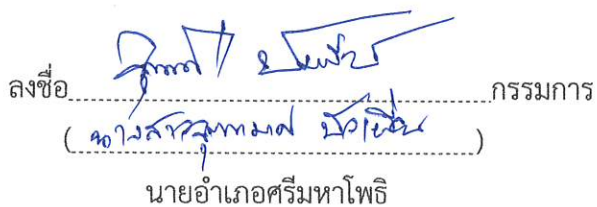 ลงชื่อ กรรมการ
( นางสาวจุฑามาศ )
นายอำเภอศรีมหาโพธิ